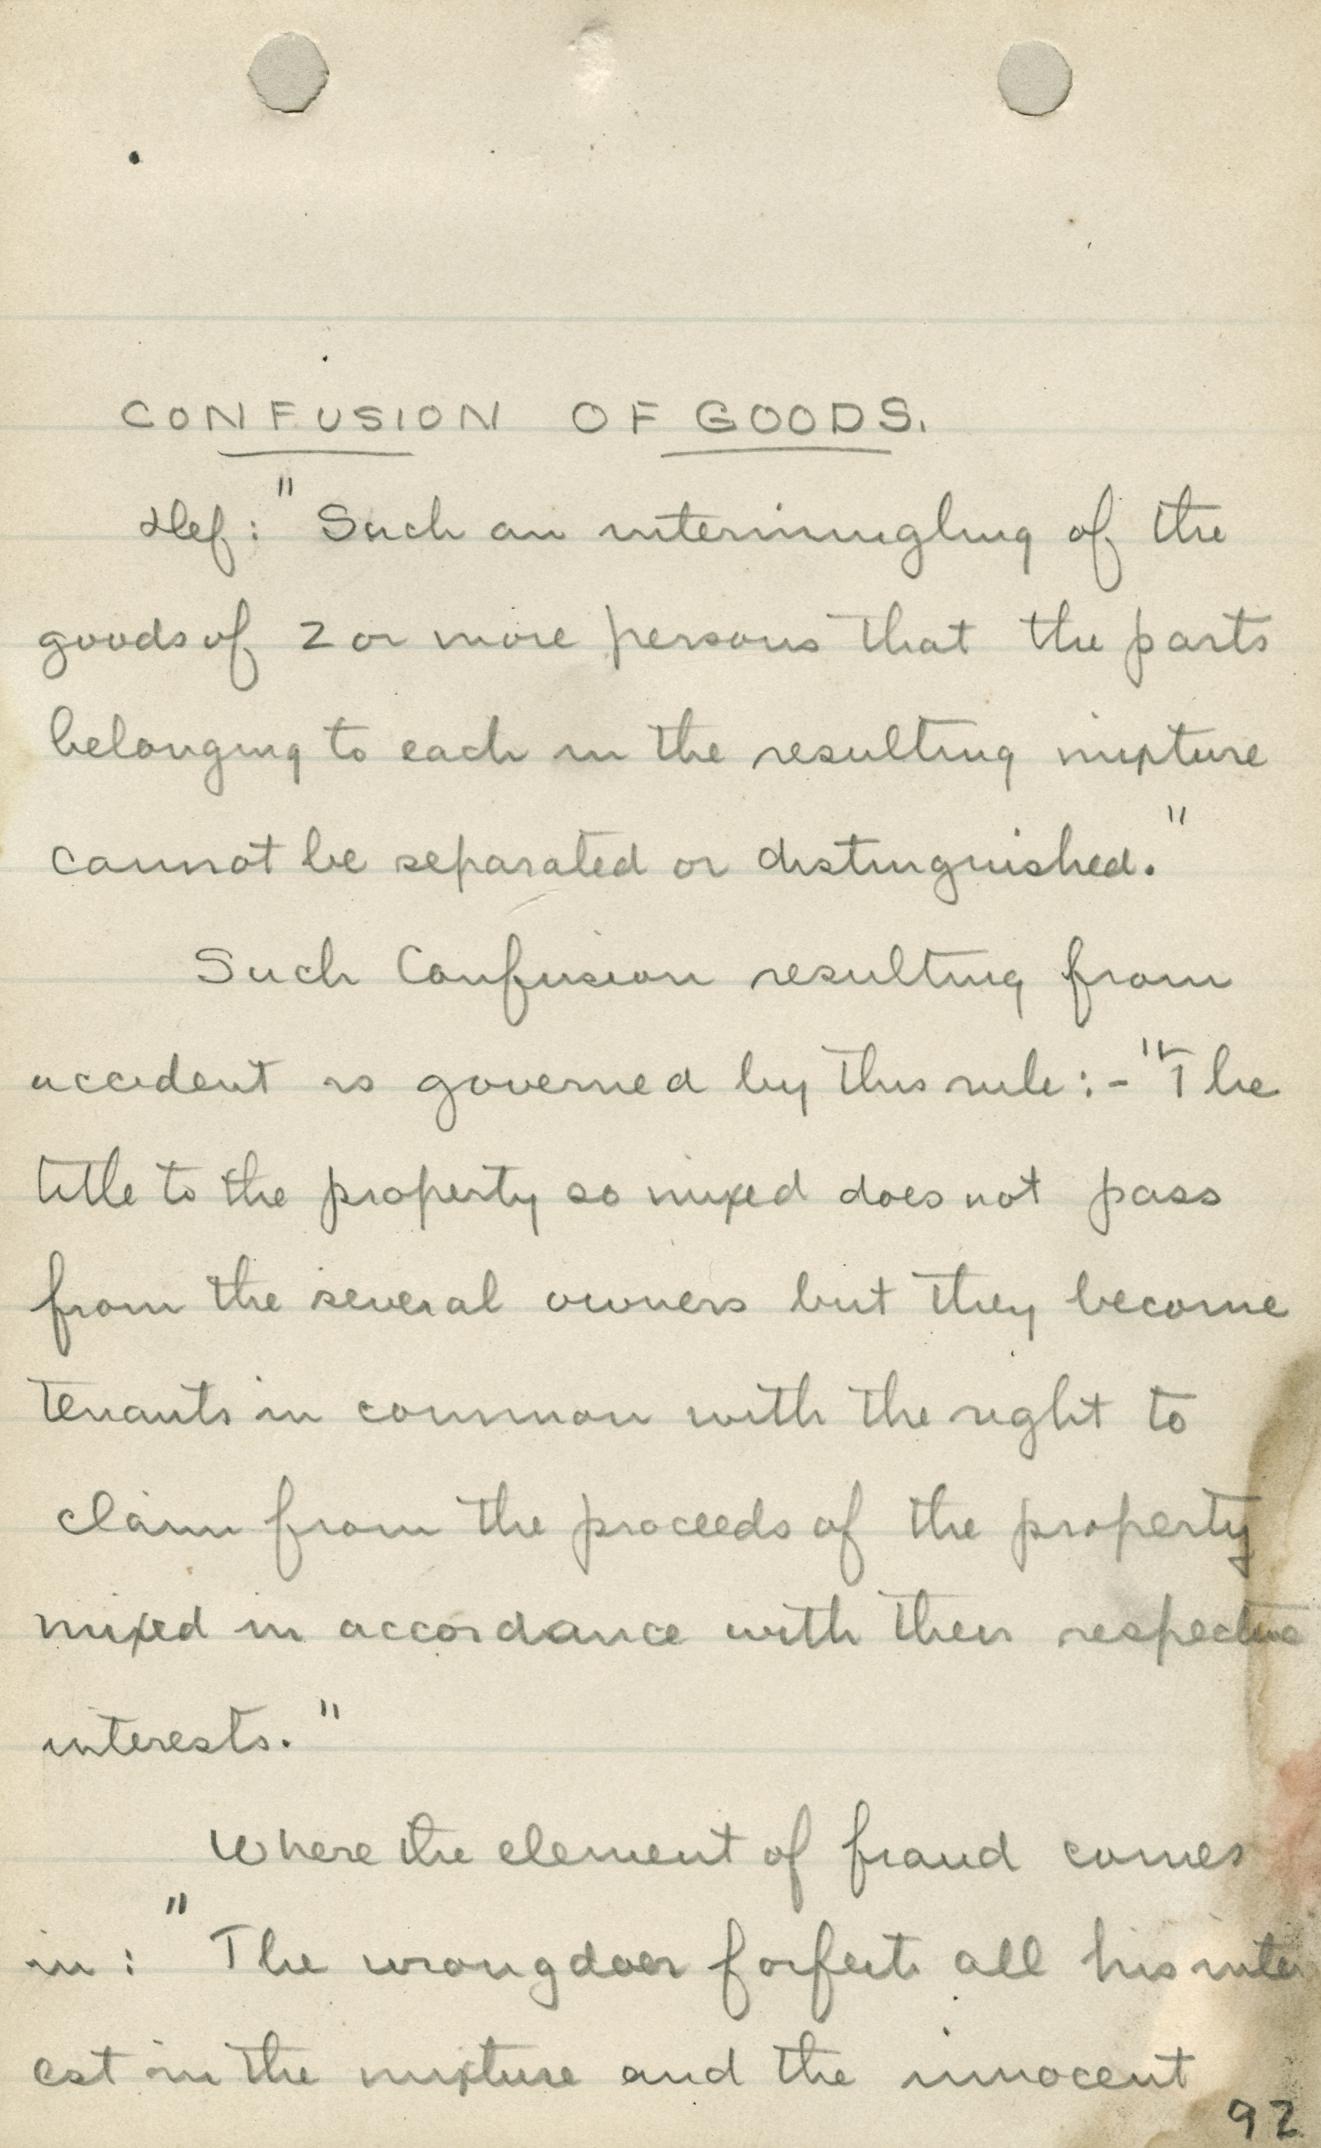 CONFUSION OF GOODS.
Def: "Such an intermingling of the
goods of 2 or more persons that the parts
belonging to each in the resulting mixture
cannot be separated or distinguished."
Such Confusion resulting from
accident is governed by this rule:- "The
title to the property so mixed does not pass
from the several owners but they become
tenants in common with the right to
claim from the proceeds of the property
mixed in accordance with their respective
interests."
Where the element of fraud comes
in: "The wrongdoer forfeits all his inter
est in the mixture and the innocent
92